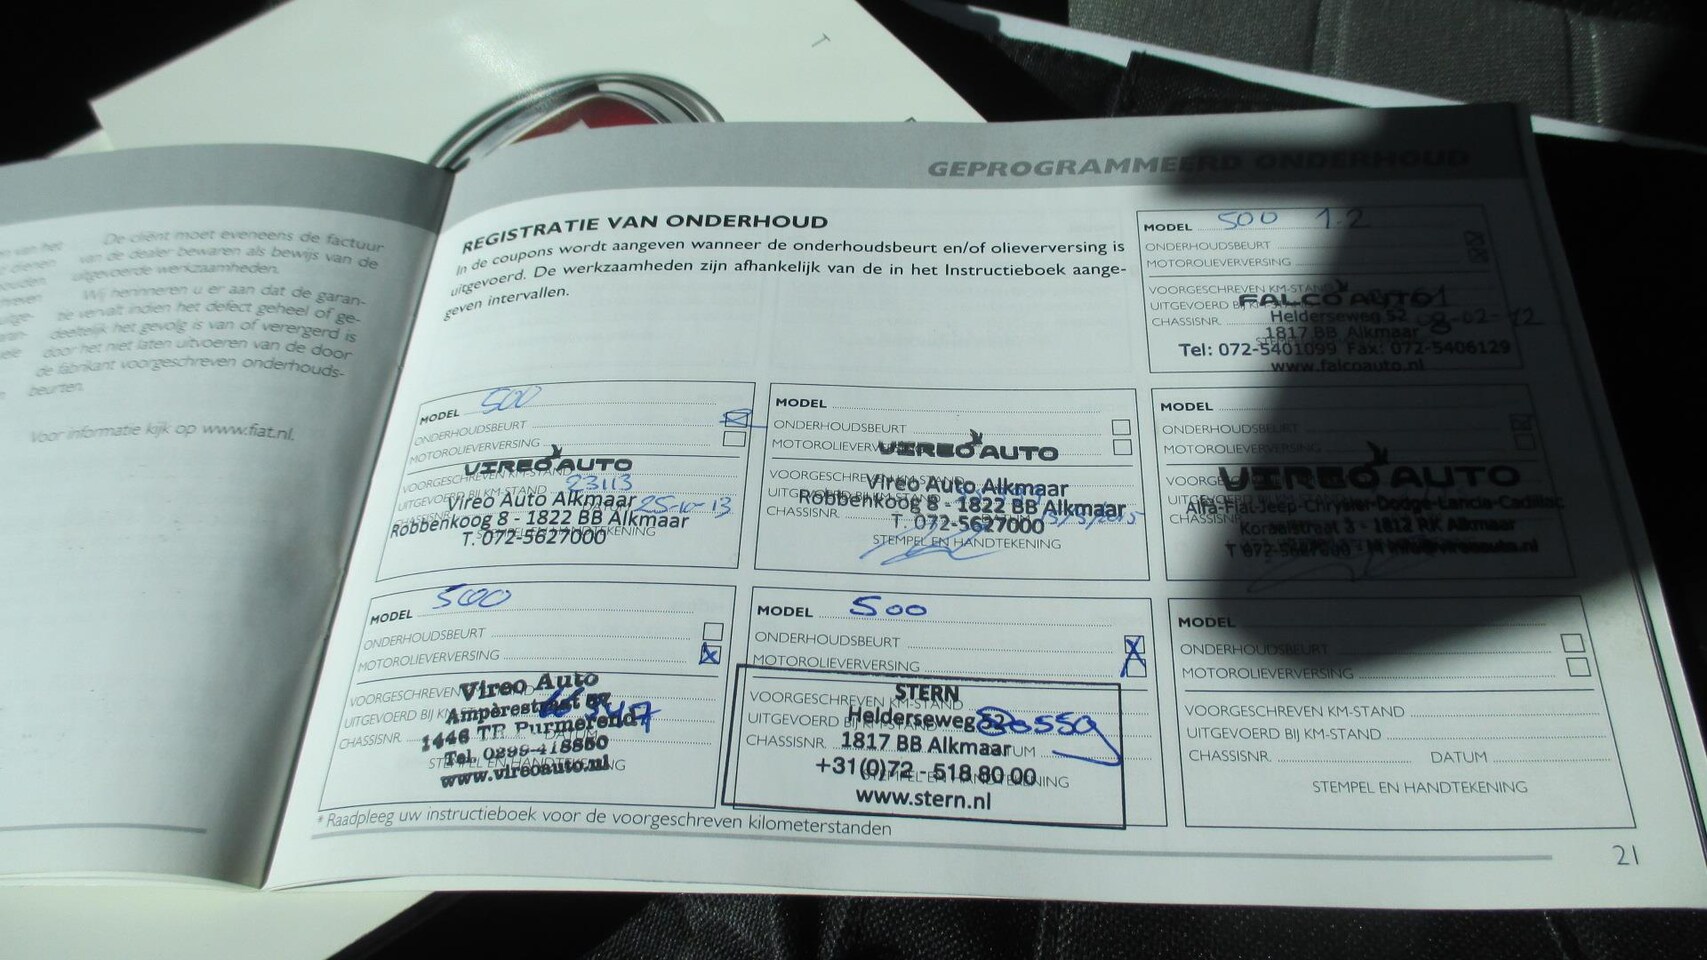 De cliënt moet eveneens de factuur
van de dealer bewaren als bewijs van de
uitgevoerde werkzaamheden.
Wij herinneren u er aan dat de garan-
tie vervalt indien het defect geheel of ge-
deeltelijk het gevolg is van of verergerd is
door het niet laten uitvoeren van de door
de fabrikant voorgeschreven onderhouds-
beurten.
Voor informatie kijk op www.fiat.nl.
GEPROGRAMMEERD ONDERHOUD
REGISTRATIE VAN ONDERHOUD
In de coupons wordt aangeven wanneer de onderhoudsbeurt en/of olieverversing is
uitgevoerd. De werkzaamheden zijn afhankelijk van de in het Instructieboek aange-
geven intervallen.
MODEL 500 1.2
ONDERHOUDSBEURT
MOTOROLIEVERVERSING
VOORGESCHREVEN KM-STAND
UITGEVOERD BIJ KM-STAND
CHASSISNR.
FALCO AUTO
Helderseweg 52
08-02-12
1817 BB Alkmaar
Tel: 072-5401099 Fax: 072-5406129
www.falcoauto.nl
MODEL 500
ONDERHOUDSBEURT
MOTOROLIEVERVERSING
VIREO AUTO
VOORGESCHREVEN KM-STAND
UITGEVOERD BIJ KM-STAND 23113
Vireo Auto Alkmaar 25-10-13
Robbenkoog 8 - 1822 BB Alkmaar
T. 072-5627000
STEMPEL EN HANDTEKENING
MODEL
ONDERHOUDSBEURT
MOTOROLIEVERVERSING
VIREO AUTO
VOORGESCHREVEN KM-STAND
UITGEVOERD BIJ KM-STAND
CHASSISNR.
Vireo Auto Alkmaar
Robbenkoog 8 - 1822 BB Alkmaar
T. 072-5627000
STEMPEL EN HANDTEKENING
MODEL
ONDERHOUDSBEURT
MOTOROLIEVERVERSING
VIREO AUTO
Alfa-Fiat-Jeep-Chrysler-Dodge-Lancia-Cadillac
Koraalstraat 3 - 1812 RK Alkmaar
MODEL 500
ONDERHOUDSBEURT
MOTOROLIEVERVERSING
VOORGESCHREVEN KM-STAND
UITGEVOERD BIJ KM-STAND
CHASSISNR. DATUM
Vireo Auto
Ampèrestraat
1446 TP Purmerend
Tel. 0299-418850
www.vireoauto.nl
STEMPEL EN HANDTEKENING
MODEL 500
ONDERHOUDSBEURT
MOTOROLIEVERVERSING
VOORGESCHREVEN KM-STAND
UITGEVOERD BIJ KM-STAND 80559
CHASSISNR. DATUM
STERN
Helderseweg 52
1817 BB Alkmaar
+31(0)72 - 518 80 00
www.stern.nl
STEMPEL EN HANDTEKENING
MODEL
ONDERHOUDSBEURT
MOTOROLIEVERVERSING
VOORGESCHREVEN KM-STAND
UITGEVOERD BIJ KM-STAND
CHASSISNR. DATUM
STEMPEL EN HANDTEKENING
* Raadpleeg uw instructieboek voor de voorgeschreven kilometerstanden
21